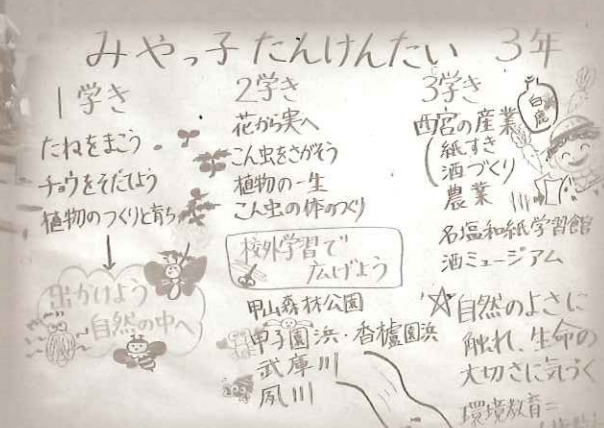 みやっ子たんけんたい 3年
1学き
たねをまこう
チョウをそだてよう
植物のつくりと育ち
出かけよう
自然の中へ
2学き
花から実へ
こん虫をさがそう
植物の一生
こん虫の体のつくり
校外学習で
広げよう
甲山森林公園
甲子園浜・香櫨園浜
武庫川
夙川
3学き
西宮の産業
紙すき
酒づくり
農業
白鹿
名塩和紙学習館
酒ミュージアム
☆自然のよさに
触れ、生命の
大切さに気づく
環境教育=